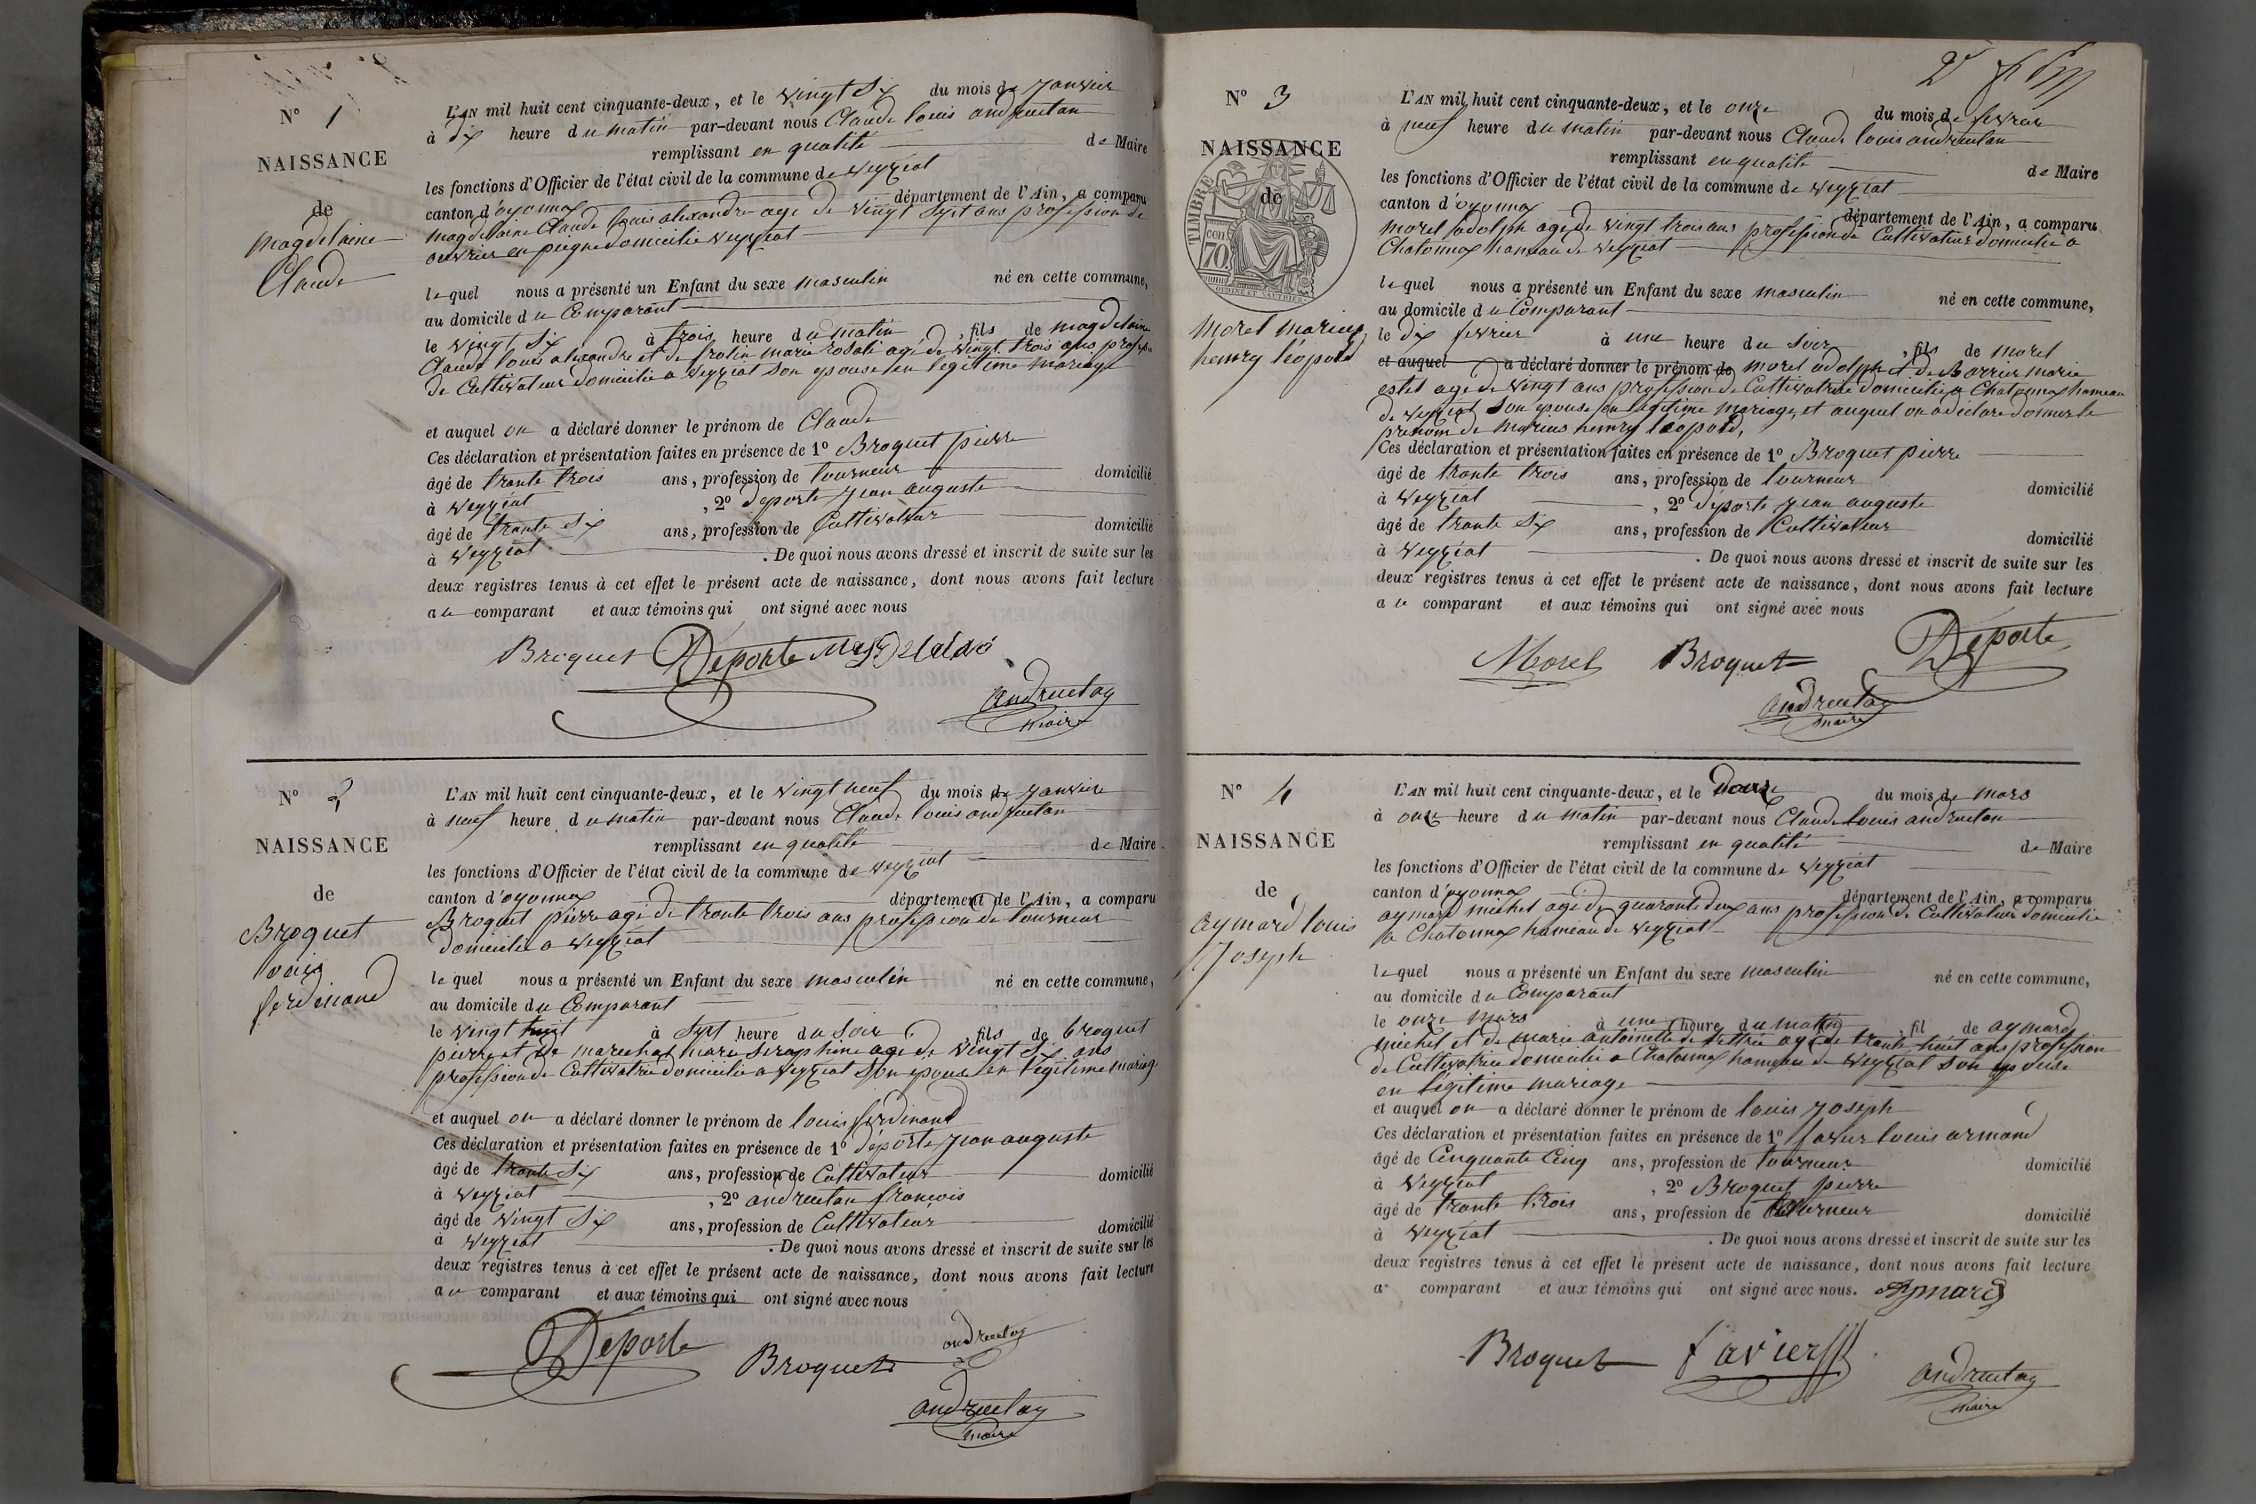 N° 1
NAISSANCE
de
magdelaine
Claude
L'AN mil huit cent cinquante-deux, et le vingt six du mois de janvier
à dix heure du matin par-devant nous Claude louis andruetan
remplissant en qualité de Maire
les fonctions d'Officier de l'état civil de la commune de veyziat
canton d'oyonnax département de l'Ain, a comparu
magdelaine Claude louis alexandre age de vingt sept ans profession de
ouvrier en peigne domicilié veyziat
lequel nous a présenté un Enfant du sexe masculin né en cette commune,
au domicile du Comparant
le vingt six à trois heure du matin, fils de magdelaine
Claude louis alexandre et de marie rosali agé de vingt trois ans
de Cultivateur domicilié a veyziat son epouse en legitime mariage
et auquel on a déclaré donner le prénom de Claude
Ces déclaration et présentation faites en présence de 1° Broquet pierre
âgé de trante trois ans, profession de tourneur domicilié
à veyziat, 2° deporte jean auguste
âgé de trante six ans, profession de Cultivateur domicilié
à veyziat. De quoi nous avons dressé et inscrit de suite sur les
deux registres tenus à cet effet le présent acte de naissance, dont nous avons fait lecture
au comparant et aux témoins qui ont signé avec nous
Broquet Déporte
andruetan
maire
N° 2
NAISSANCE
de
Broquet
louis
ferdinand
L'AN mil huit cent cinquante-deux, et le vingt neuf du mois de janvier
à neuf heure du matin par-devant nous Claude louis andruetan
remplissant en qualité de Maire
les fonctions d'Officier de l'état civil de la commune de veyziat
canton d'oyonnax département de l'Ain, a comparu
Broquet pierre agé de trante trois ans profession de tourneur
domicilié a veyziat
lequel nous a présenté un Enfant du sexe masculin né en cette commune,
au domicile du Comparant
le vingt huit à sept heure du soir, fils de broquet
pierre et de marechal marie seraphine age de vingt six ans
profession de Cultivatrice domicilié a veyziat son epouse en legitime mariage
et auquel on a déclaré donner le prénom de louis ferdinand
Ces déclaration et présentation faites en présence de 1° déporte jean auguste
âgé de trante six ans, profession de Cultivateur domicilié
à veyziat, 2° andruetan françois
âgé de vingt six ans, profession de Cultivateur domicilié
à veyziat. De quoi nous avons dressé et inscrit de suite sur les
deux registres tenus à cet effet le présent acte de naissance, dont nous avons fait lecture
au comparant et aux témoins qui ont signé avec nous
Déporte Broquet andruetan
andruetan
maire
N° 3
NAISSANCE
de
TIMBRE
cen.
70.
morel marius
henry léopold
L'AN mil huit cent cinquante-deux, et le onze du mois de fevrier
à neuf heure du matin par-devant nous Claude louis andruetan
remplissant en qualité de Maire
les fonctions d'Officier de l'état civil de la commune de veyziat
canton d'oyonnax département de l'Ain, a comparu
morel adolph agé de vingt trois ans profession de Cultivateur domicilié a
Chatonnax hameau de veyziat
lequel nous a présenté un Enfant du sexe masculin né en cette commune,
au domicile du Comparant
le dix fevrier à une heure du soir, fils de morel
et auquel a déclaré donner le prénom de morel adolph et de marie
estel age de vingt ans profession de Cultivatrice domicilié a Chatonnax hameau
de veyziat son epouse en legitime mariage, et auquel on a déclaré donner le
prenom de marius henry léopold,
Ces déclaration et présentation faites en présence de 1° Broquet pierre
âgé de trante trois ans, profession de tourneur domicilié
à veyziat, 2° déporte jean auguste
âgé de trante six ans, profession de Cultivateur domicilié
à veyziat. De quoi nous avons dressé et inscrit de suite sur les
deux registres tenus à cet effet le présent acte de naissance, dont nous avons fait lecture
au comparant et aux témoins qui ont signé avec nous
Morel Broquet Déporte
andruetan
maire
N° 4
NAISSANCE
de
aymard louis
Joseph
L'AN mil huit cent cinquante-deux, et le douze du mois de mars
à onze heure du matin par-devant nous Claude louis andruetan
remplissant en qualité de Maire
les fonctions d'Officier de l'état civil de la commune de veyziat
canton d'oyonnax département de l'Ain, a comparu
aymard michel agé de quarante deux ans profession de Cultivateur domicilié
a Chatonnax hameau de veyziat
lequel nous a présenté un Enfant du sexe masculin né en cette commune,
au domicile du Comparant
le onze mars à une heure du matin, fil de aymard
michel et de marie antoinette agé de trante huit ans profession
de Cultivatrice domicilié a Chatonnax hameau de veyziat son epouse
en légitime mariage
et auquel on a déclaré donner le prénom de louis joseph
Ces déclaration et présentation faites en présence de 1° favier louis armand
âgé de Cinquante Cinq ans, profession de tourneur domicilié
à veyziat, 2° Broquet pierre
âgé de trante trois ans, profession de tourneur domicilié
à veyziat. De quoi nous avons dressé et inscrit de suite sur les
deux registres tenus à cet effet le présent acte de naissance, dont nous avons fait lecture
a comparant et aux témoins qui ont signé avec nous. Aymard
Broquet favier
andruetan
maire